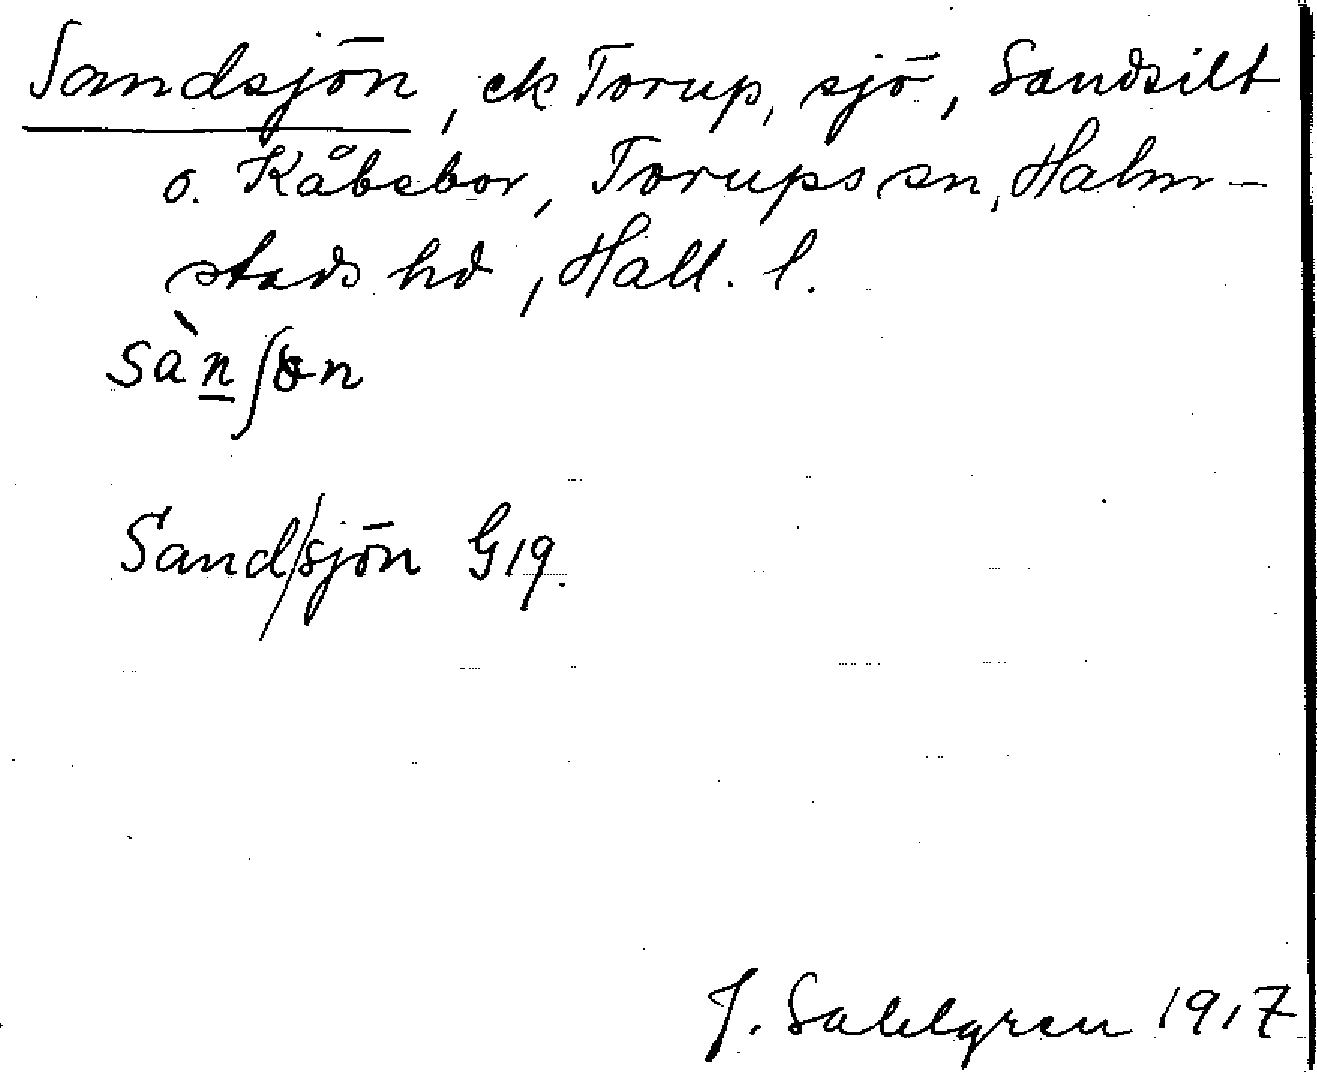 Sandsjön, ek Torup, sjö, Sandsilt
o. Kåbebor, Torups sn, Halm-
stads hd, Hall. l.
sànʃɵn
Sand/sjön G19.
J. Sahlgren 1917